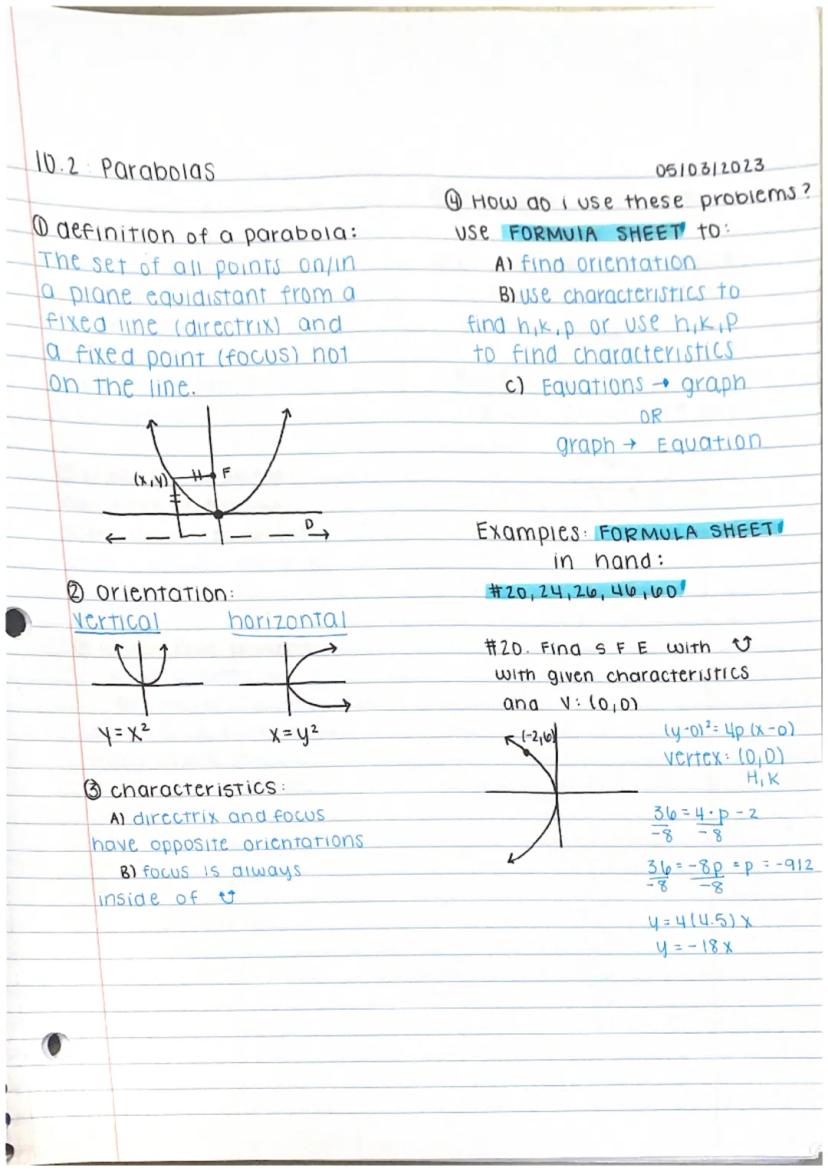 10.2: Parabolas
05/03/2023
① definition of a parabola:
The set of all points on/in
a plane equidistant from a
fixed line (directrix) and
a fixed point (focus) not
on the line.
(x,y)
F
D
② orientation:
vertical
horizontal
y=x²
x=y²
③ characteristics:
A) directrix and focus
have opposite orientations
B) focus is always
inside of
④ How do i use these problems?
use FORMULA SHEET to:
A) find orientation
B) use characteristics to
find h,k,p or use h,k,p
to find characteristics
c) Equations → graph
OR
graph → Equation
Examples: FORMULA SHEET
in hand:
#20, 24, 26, 46, 60
#20. Find S F E with
with given characteristics
and V: (0,0)
(-2,6)
(y-0)²= 4p (x-0)
vertex: (0,0)
H,K
36 = 4·p - 2
-8 -8
36 = -8p = p = -912
-8 -8
y = 4(4.5) x
y = -18x